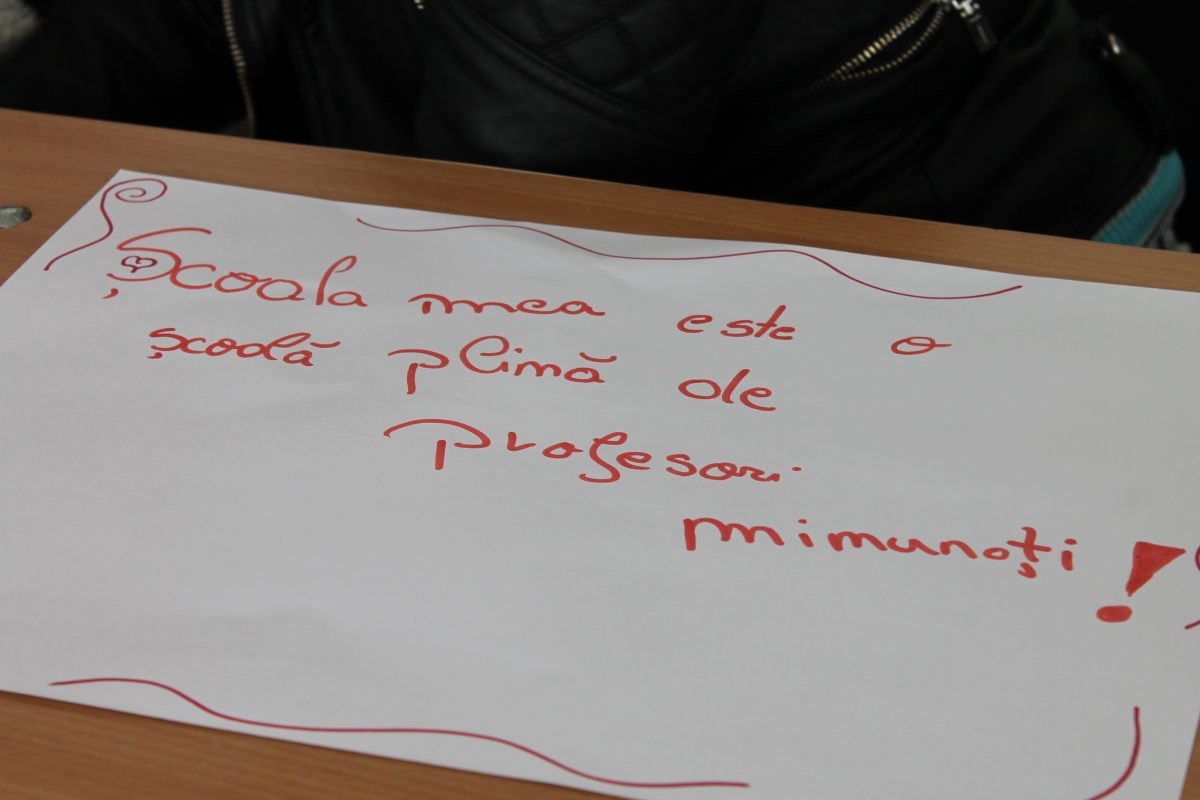 Școala mea este o
școală plină de
profesori
minunați!